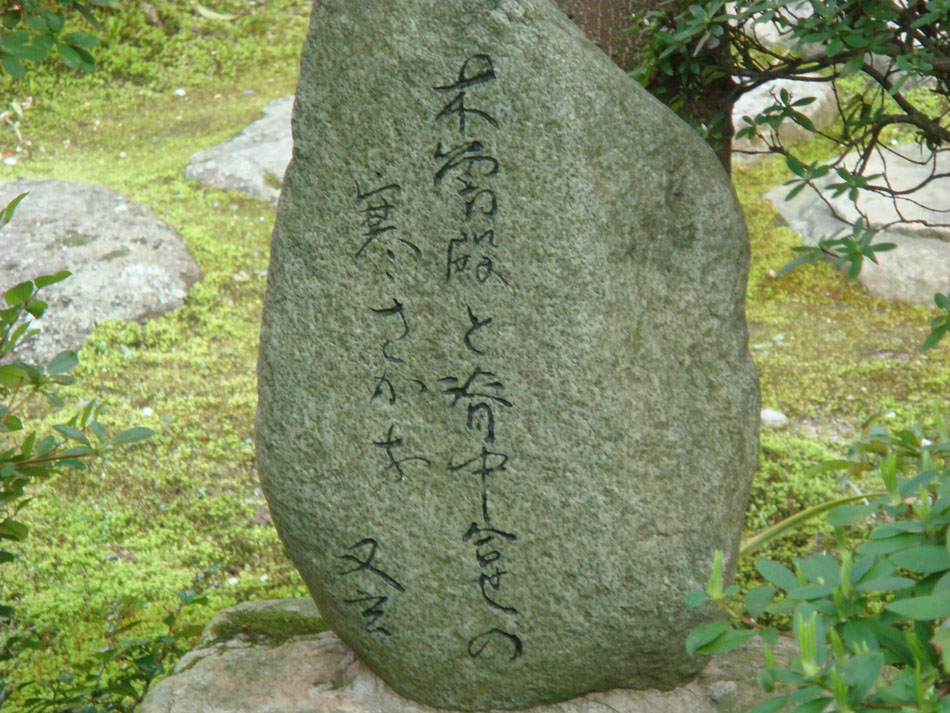 木曽殿と背中合せの
寒さかな
又玄